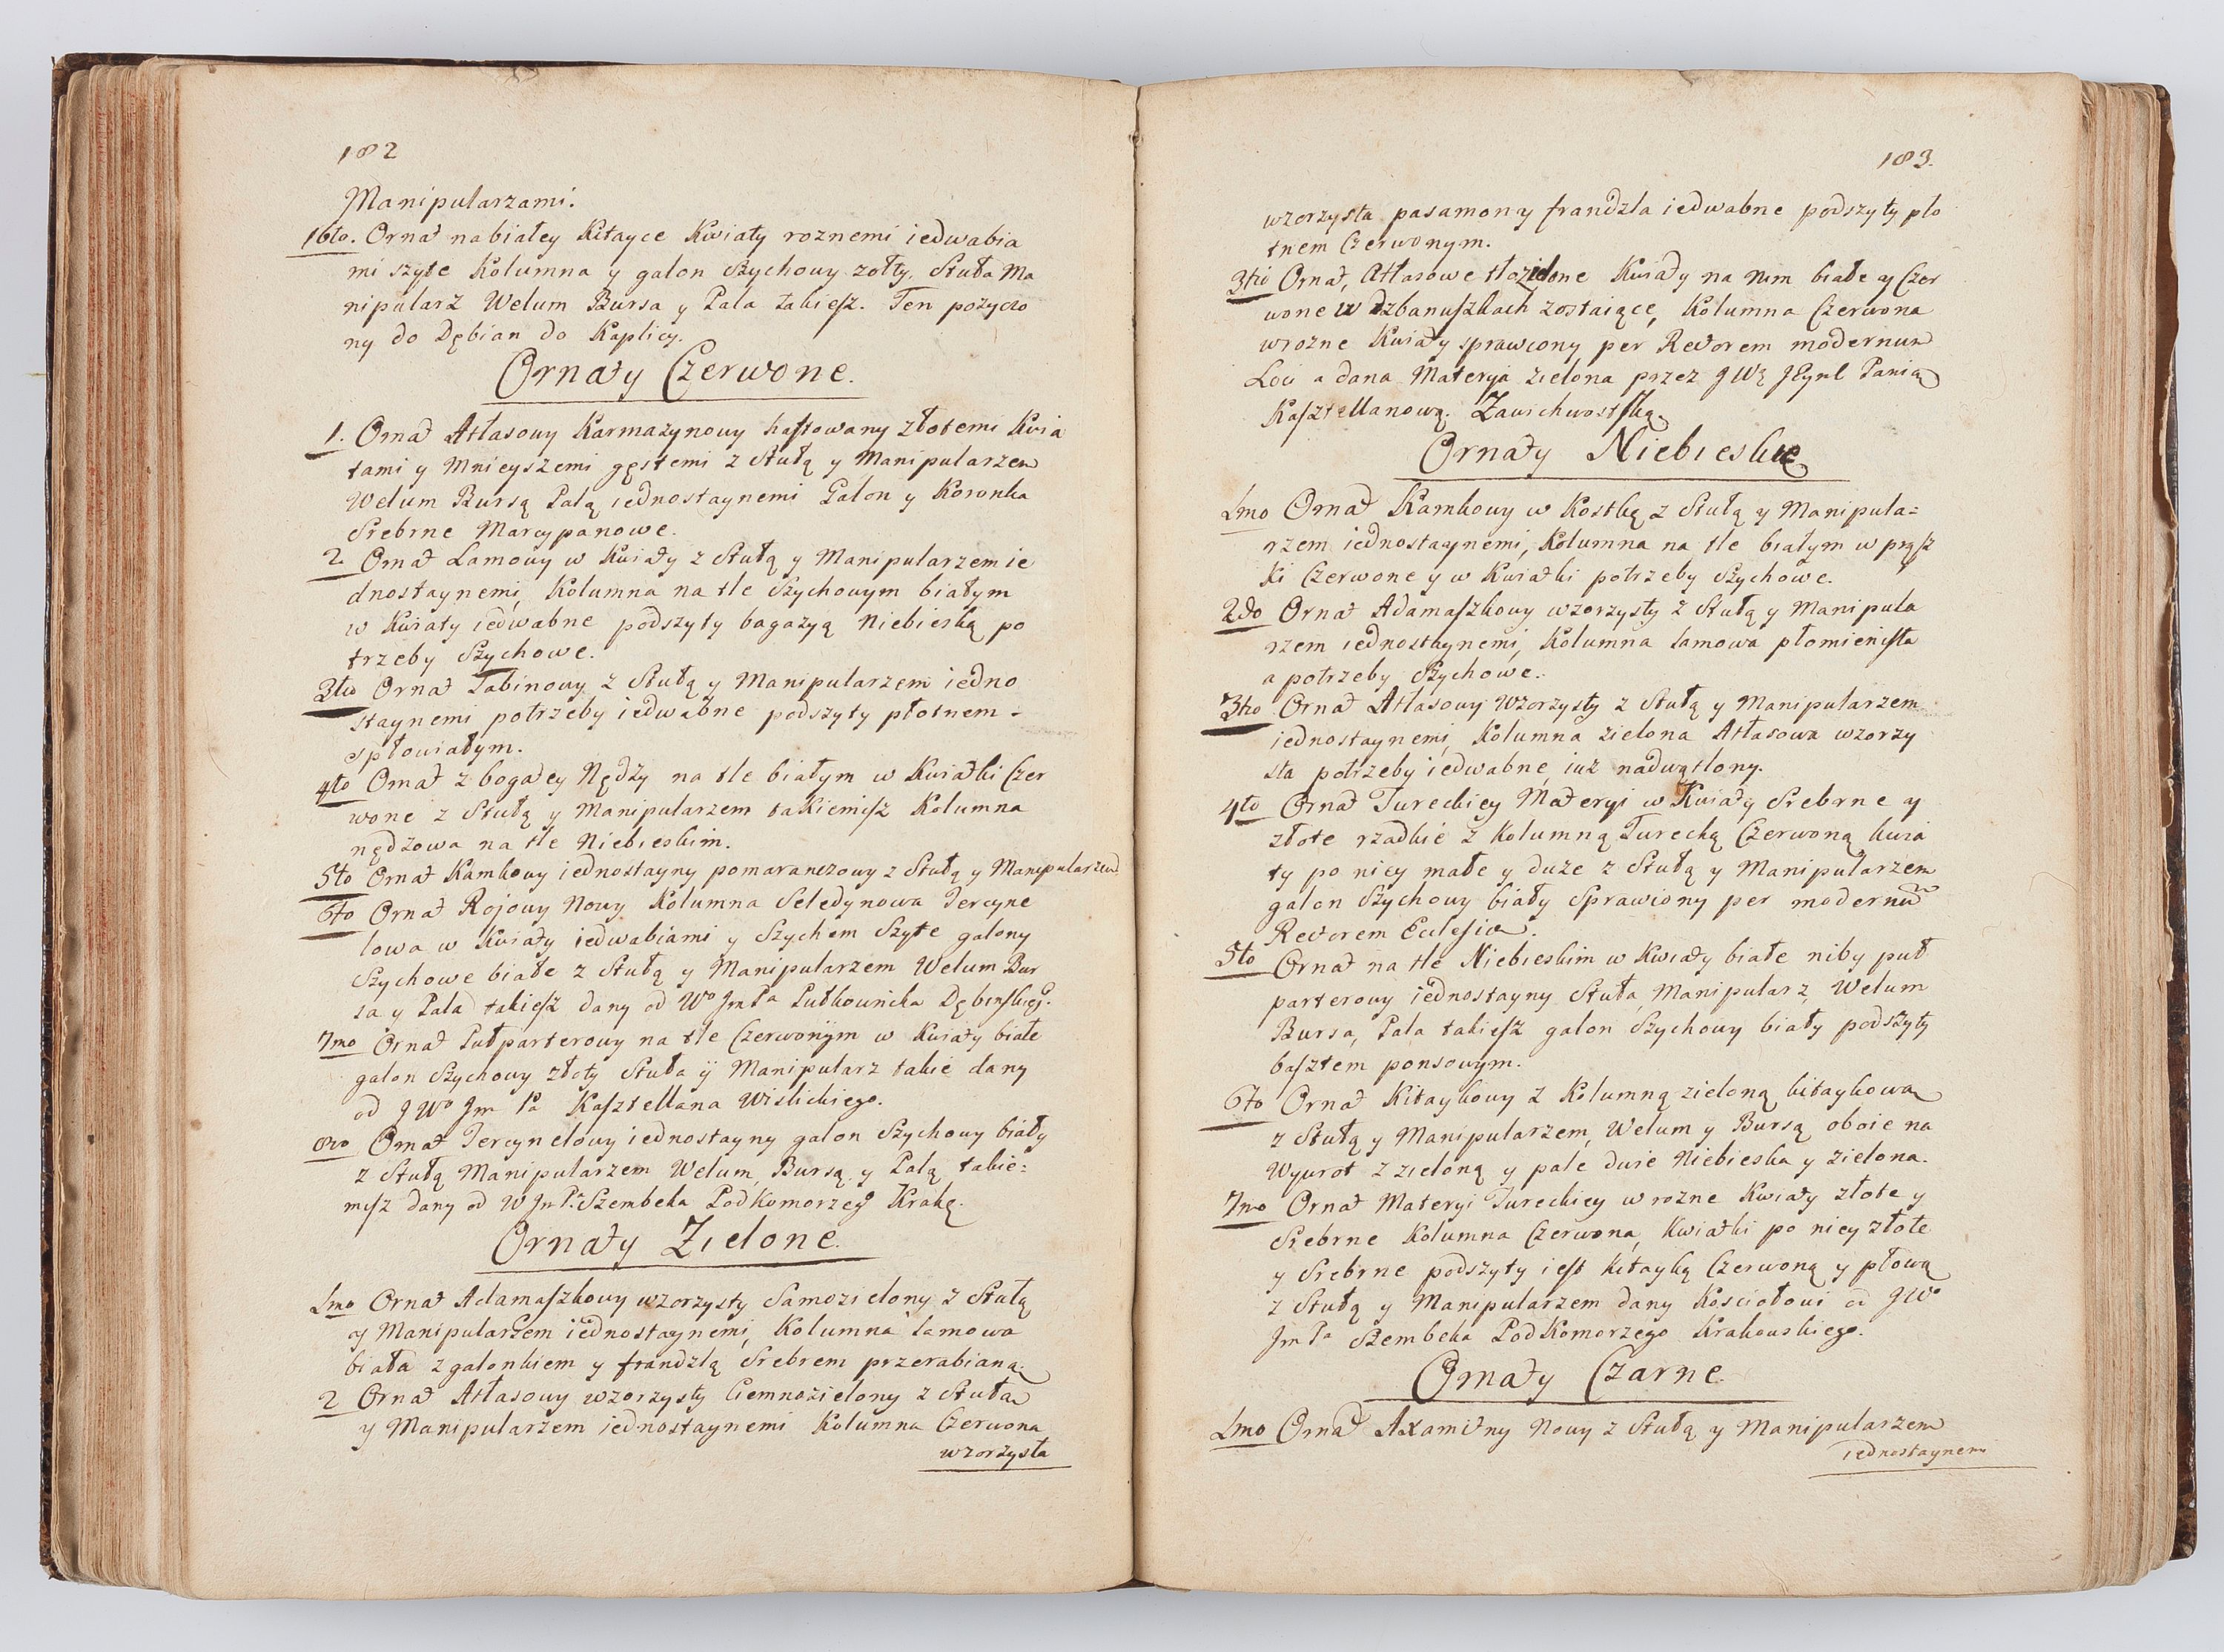 182
Manipularzami.
16to. Ornat na białey Kitayce Kwiaty roznemi iedwabia
mi szyte Kolumna y galon Szychowy zołty, Stuła Ma
nipularz Welum Bursa y Pala takiesz. Ten pozyczo
ny do Dębian do Kaplicy.
Ornaty Czerwone.
1. Ornat Atłasowy Karmazynowy haftowany złotemi Kwia
tami y Mnieyszemi gęstemi z Stułą y Manipularzem
Welum Bursą Palą iednostaynemi Galon y Koronka
Srebrne Marcypanowe.
2 Ornat Lamowy w Kwiaty z Stułą y Manipularzem ie
dnostaynemi, Kolumna na tle Szychowym białym
w Kwiaty iedwabne podszyty bagazyą Niebieską po
trzeby Szychowe.
3tio Ornat Tabinowy z Stułą y Manipularzem iedno
staynemi potrzeby iedwabne podszyty płotnem
spłowiałym.
4to Ornat z bogatey Nędzy na tle białym w Kwiatki Czer
wone z Stułą y Manipularzem takiemisz Kolumna
nędzowa na tle Niebieskim.
5to Ornat Kamkowy iednostayny pomaranczowy z Stułą y Manipularzem
6to Ornat Rojowy Nowy Kolumna Seledynowa Tercyne
lowa w Kwiaty iedwabiami y Szychem Szyte galony
Szychowe białe z Stułą y Manipularzem Welum Bur
sa y Pala takiesz dany od Wo Jm Pa Pułkownika Dębinskieg.
7mo Ornat Pułparterowy na tle Czerwonÿm w Kwiaty białe
galon Szychowy złoty Stuła ÿ Manipularz takie dany
od JWo Jm Pa Kasztellana Wislickiego.
8vo Ornat Tercynelowy iednostayny galon Szychowy biały
z Stułą Manipularzem Welum, Bursą y Palą takie=
misz dany od W Jm Pa Szembeka PodKomorzeg Krakg.
Ornaty Zielone.
1mo Ornat Adamaszkowy wzorzysty Samozielony z Stułą
y Manipularzem iednostaynemi, Kolumna lamowa
biała z galonkiem y frandzlą Srebrem przerabianą.
2 Ornat Atłasowy wzorzysty Ciemnozielony z Stułą
y Manipularzem iednostaynemi Kolumna Czerwona
wzorzysta
183.
wzorzysta pasamony frandzla iedwabne podszyty plo
tnem Czerwonym.
3tio Ornat, Atłasowe tło zielone Kwiaty na nim białe y Czer
wone w dzbanuszkach zostaiące, Kolumna Czerwona
w rozne Kwiaty sprawiony per Rectorem modernum
Loci a dana Materyja zielona przez JWę JEymć Panią
Kasztellanową Zawichwostską.
Ornaty Niebieskie
1mo Ornat Kamkowy w Kostkę z Stułą y Manipula=
rzem iednostaynemi, Kolumna na tle białym w prąsz
ki Czerwone y w Kwiatki potrzeby Szychowe.
2do Ornat Adamaszkowy wzorzysty z Stułą y Manipula
rzem iednostaynemi, Kolumna lamowa płomienista
a potrzeby Szychowe.
3tio Ornat Atłasowy Wzorzysty z Stułą y Manipularzem
iednostaynemi, Kolumna zielona Atłasowa wzorzy
sta potrzeby iedwabne, iuz nadwątlony.
4to Ornat Tureckiey Materyi w Kwiaty Srebrne y
złote rzadkie z Kolumną Turecką Czerwoną kwia
ty po niey małe y duże z Stułą y Manipularzem
galon Szychowy biały Sprawiony per modernum
Rectorem Eclesiæ.
5to Ornat na tle Niebieskim w Kwiaty białe niby puł
parterowy iednostayny Stuła, Manipularz, Welum
Bursa, Pala takiesz galon Szychowy biały podszyty
basztem ponsowym.
6to Ornat Kitaykowy z Kolumną zieloną kitaykową
z Stułą y Manipularzem, Welum y Bursą oboie na
Wywrot z zieloną y pale dwie Niebieska y zielona.
7mo Ornat Materyi Tureckiey w rozne Kwiaty złote y
Srebrne Kolumna Czerwona, Kwiatki po niey złote
y Srebrne podszyty iest Kitayką Czerwoną y płową
z Stułą y Manipularzem dany Kosciołowi od JWo
Jm Pa Szembeka PodKomorzego Krakowskiego.
Ornaty Czarne.
1mo Ornat Axamitny Nowy z Stułą y Manipularzem
iednostaynemi